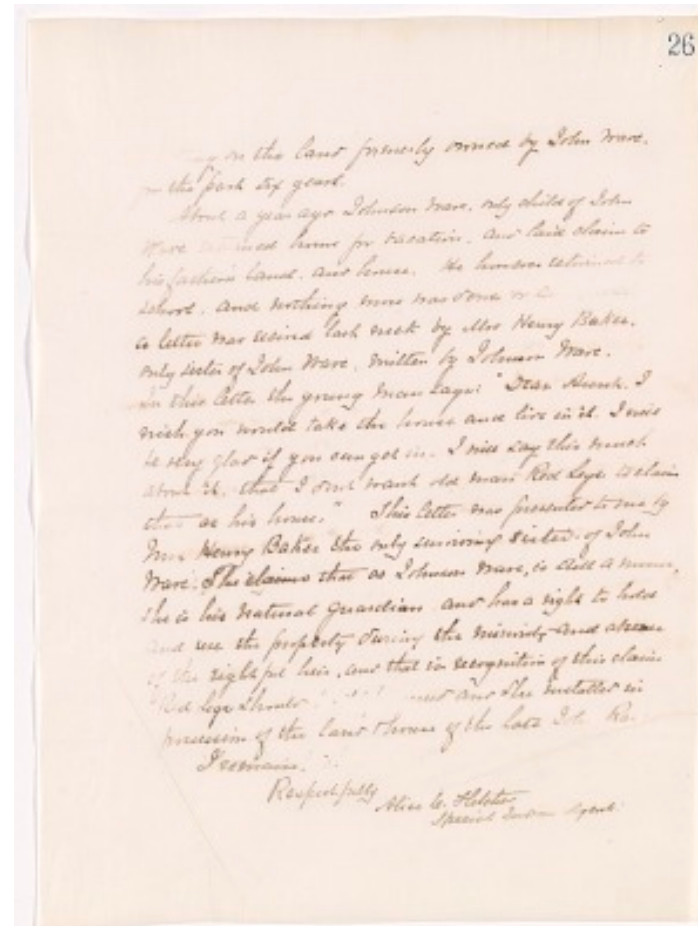 26
on the land formerly owned by John Ware,
the past six years.
About a year ago Johnson Ware, only child of John
Ware returned home for vacation, and laid claim to
his father's land, and house. He however returned to
school, and nothing more was done
a letter was received last week by Mrs Henry Baker,
only sister of John Ware, written by Johnson Ware.
In this letter the young man says: "Dear Aunt, I
wish you would take the house and live in it. I will
be very glad if you can get in. I will say this much
about it, that I don't want old man Red Legs to claim
that as his house." This letter was presented to me by
Mrs Henry Baker the only surviving sister of John
Ware. She claims that as Johnson Ware, is still a minor,
she is his natural guardian and has a right to hold
and use the property during the minority and absence
of the rightful heir, and that in recognition of this claim
Red Legs should and she installed in
possession of the land & house of the late
I remain,
Respectfully
Alice C. Fletcher
Special Indian Agent